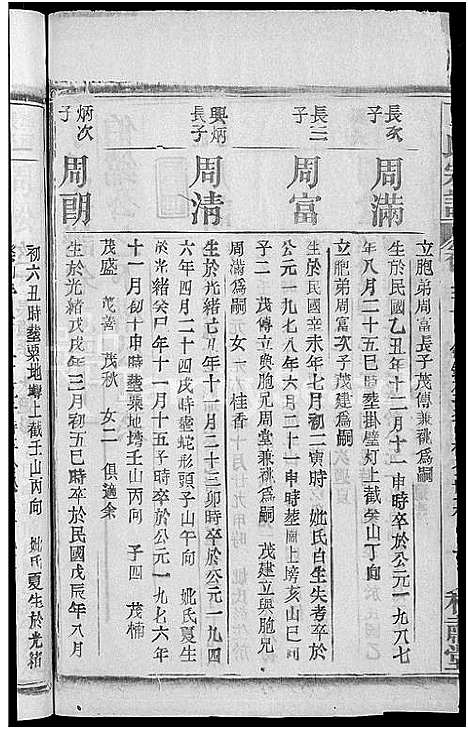 立胞弟周富長子茂傳兼祧爲嗣
長次子
周滿
生於民國乙丑年十二月十一申時卒於公元一九八七
年八月二十五巳時塟掛壁灯上截癸山丁向
立胞弟周富次子茂建爲嗣
長三子
周富
生於民國辛未年七月初二寅時 妣氏白生失考卒於
公元一九七八年六月二十一申時塟廟上塝亥山巳向
子二 茂傳立與胞兄周堂兼祧爲嗣 茂建立與胞兄
周滿爲嗣 女一 桂香
興炳長子
周淸
生於光緒乙未年十一月二十三卯時卒於公元一九四
六年四月二十四戌時塟蛇形頭子山午向 妣氏夏生
於光緒癸巳年十一月十五子時卒於公元一九七六年
十一月初十申時塟粟地塆壬山丙向 子四 茂楠
茂盛 茂善 茂秋 女二 俱適余
炳次子
周朗
生於光緒戊戌年三月初五巳時卒於民國戊辰年八月
初六丑時塟粟地塆上截壬山丙向 妣氏夏生於光緒